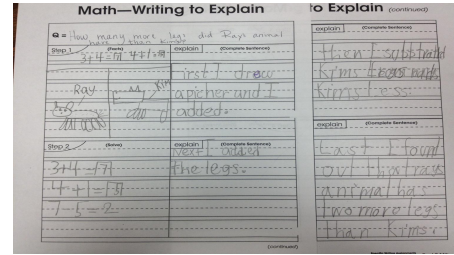 Math—Writing to Explain
Q = How many more legs did Rays animal
have than kims?
Step 1 (Facts)
3+4=7 4+1=5
explain (Complete Sentence)
First I drew
a picher and I
added.
Ray
Kim
Step 2 (Solve)
3+4=7
4+1=5
7-5=2
explain (Complete Sentence)
Next I added
the legs.
(continued)
to Explain (continued)
explain (Complete Sentence)
then I subtrated
Kims
Kims less.
explain (Complete Sentence)
Last I found
out that rays
animal has
two more legs
than Kims.